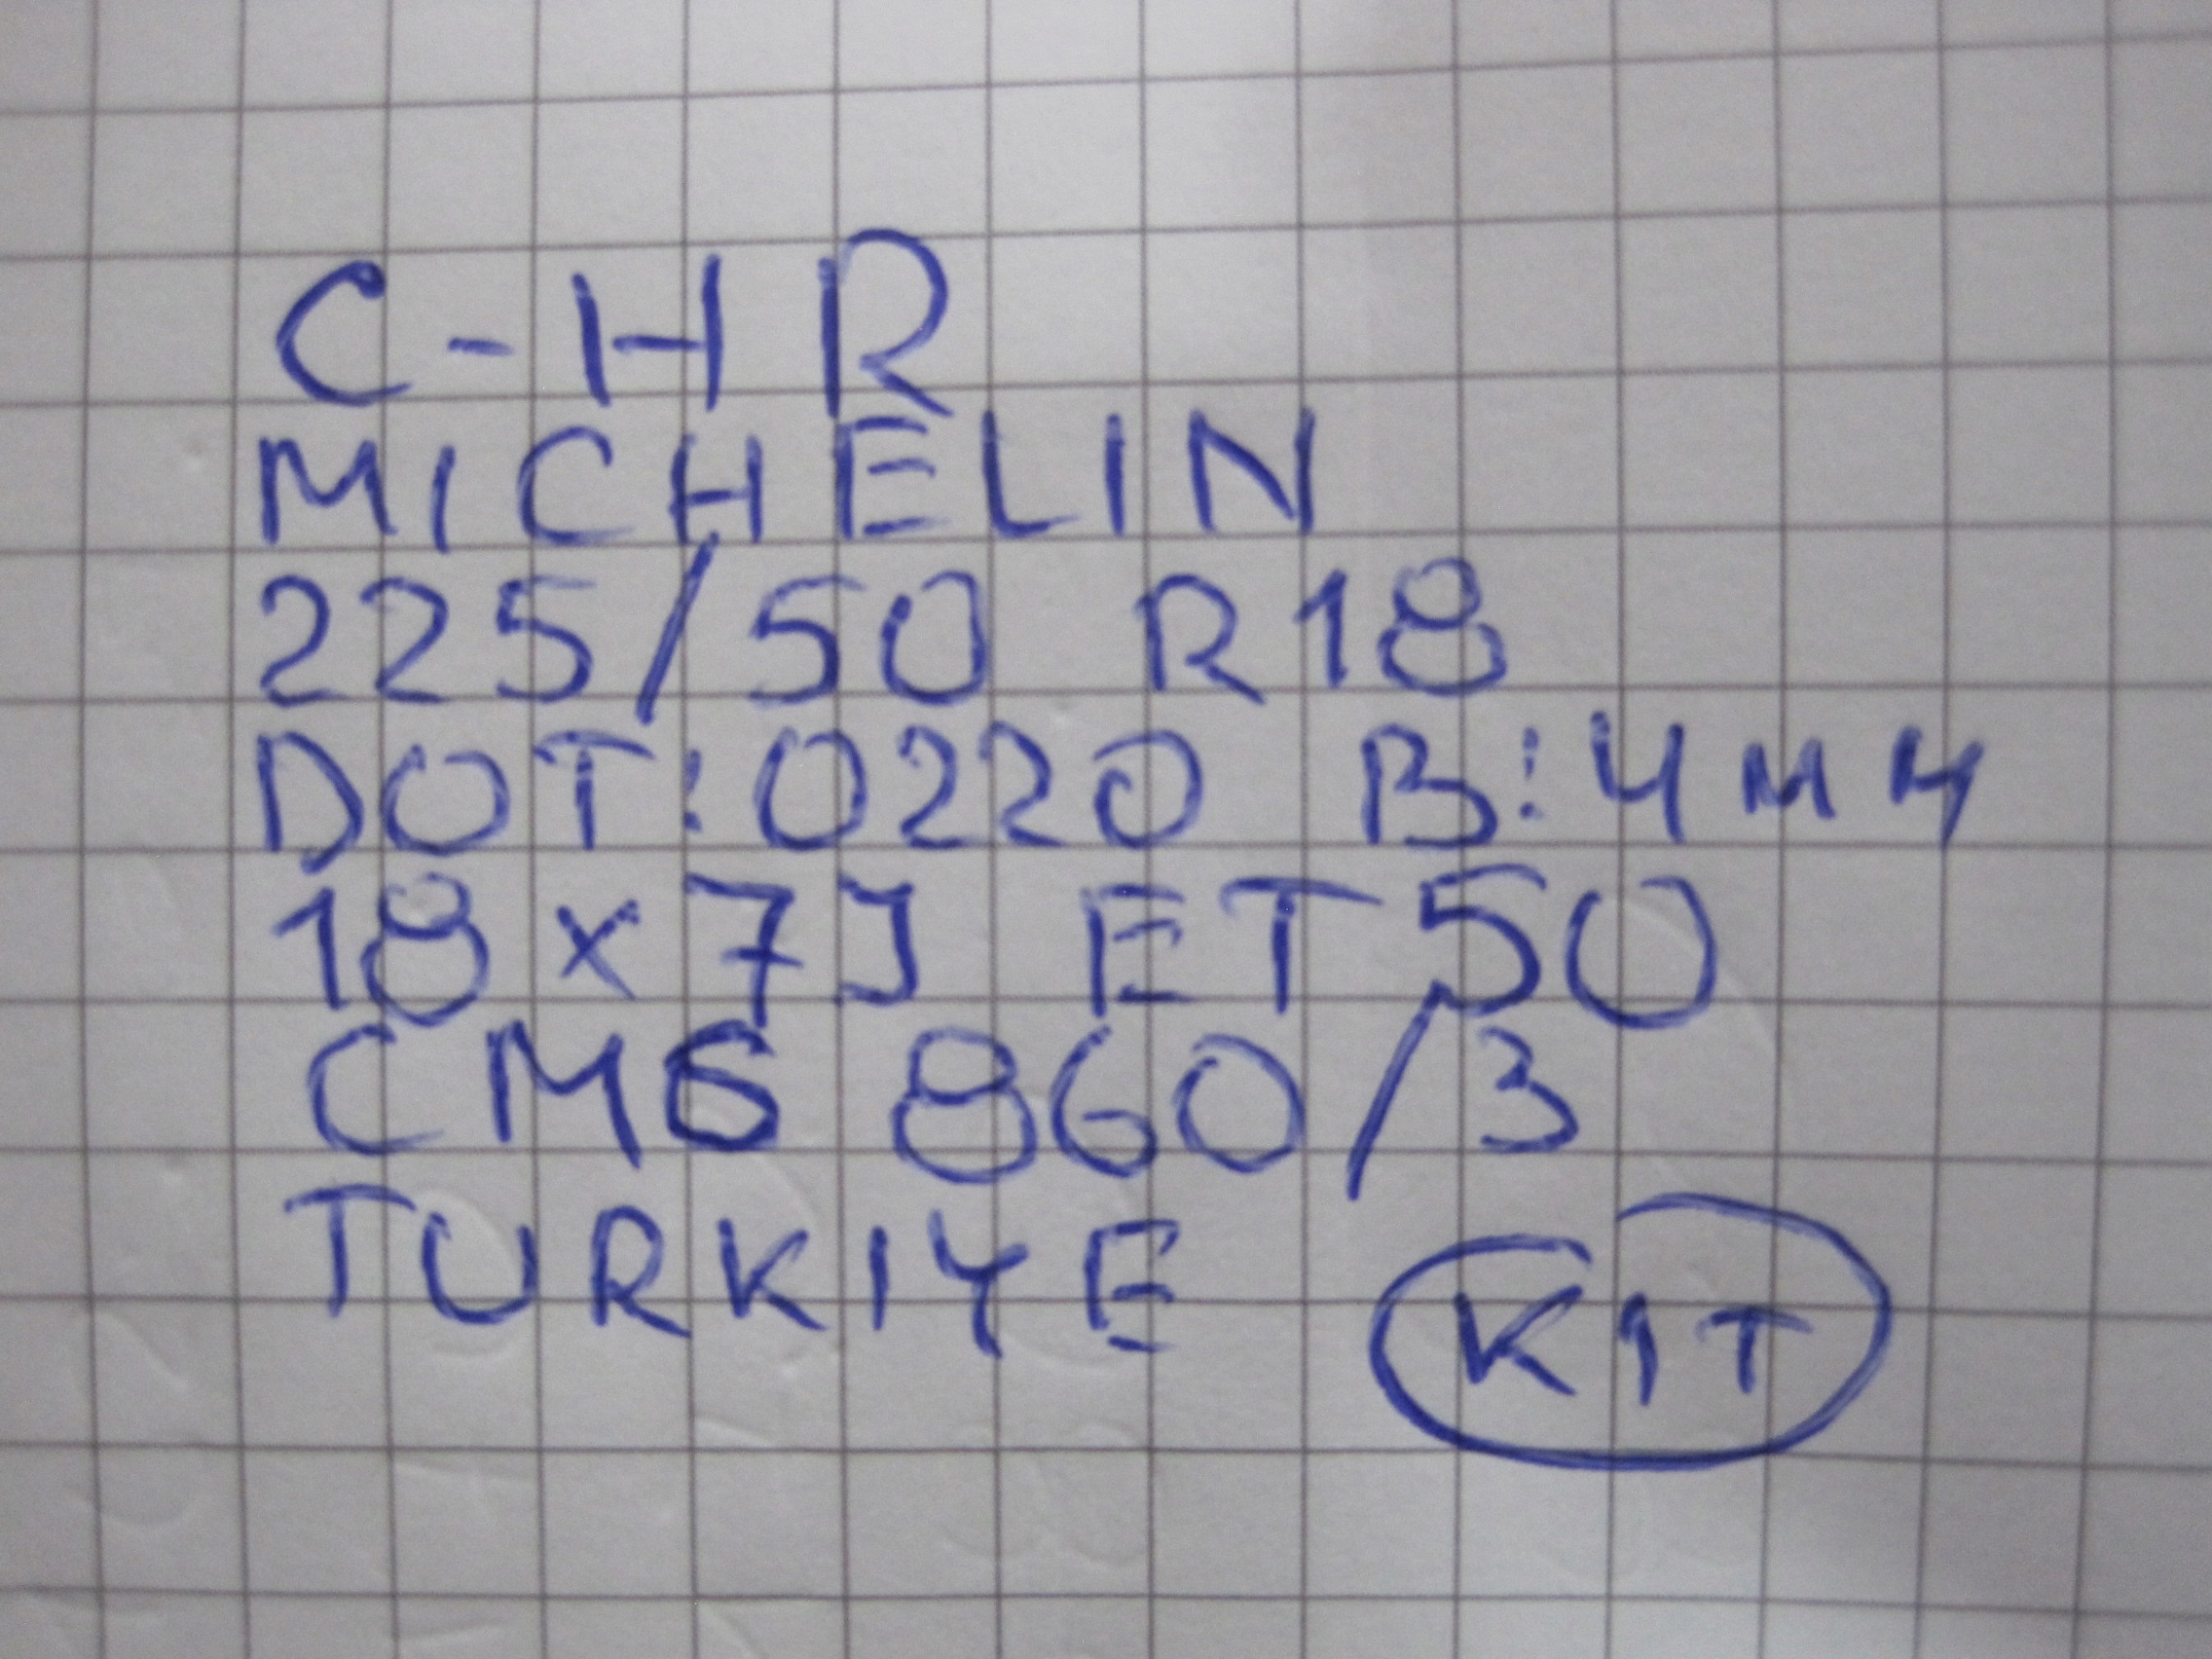 C-HR
MICHELIN
225/50 R18
DOT:0220 B:4мм
18x7J ET50
CMS 860/3
TURKIYE
KIT